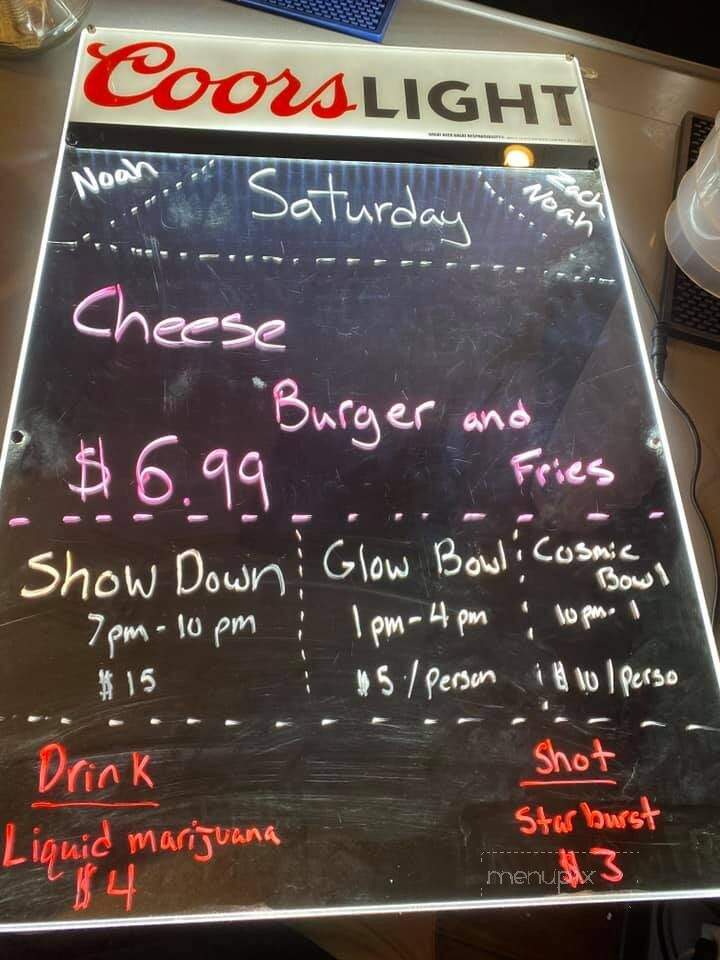 Coors LIGHT
Noah
Saturday
Zach
Noah
Cheese
Burger and
Fries
$6.99
Show Down
7pm-10pm
$15
Glow Bowl
1pm-4pm
$5/person
Cosmic
Bowl
10pm-1
$10/perso
Drink
Liquid marijuana
$4
Shot
Starburst
$3
menupix